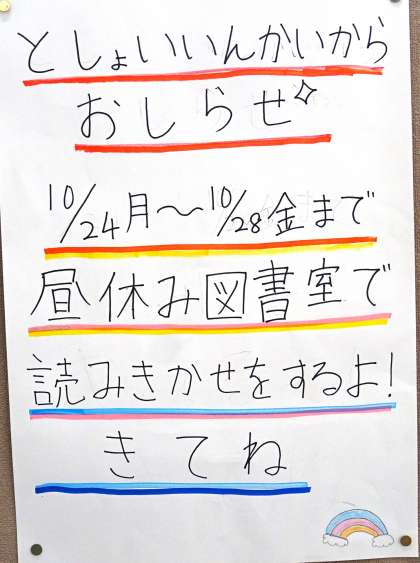 としょいいんかいから
おしらせ✧
10/24月〜10/28金まで
昼休み図書室で
読みきかせをするよ!
きてね